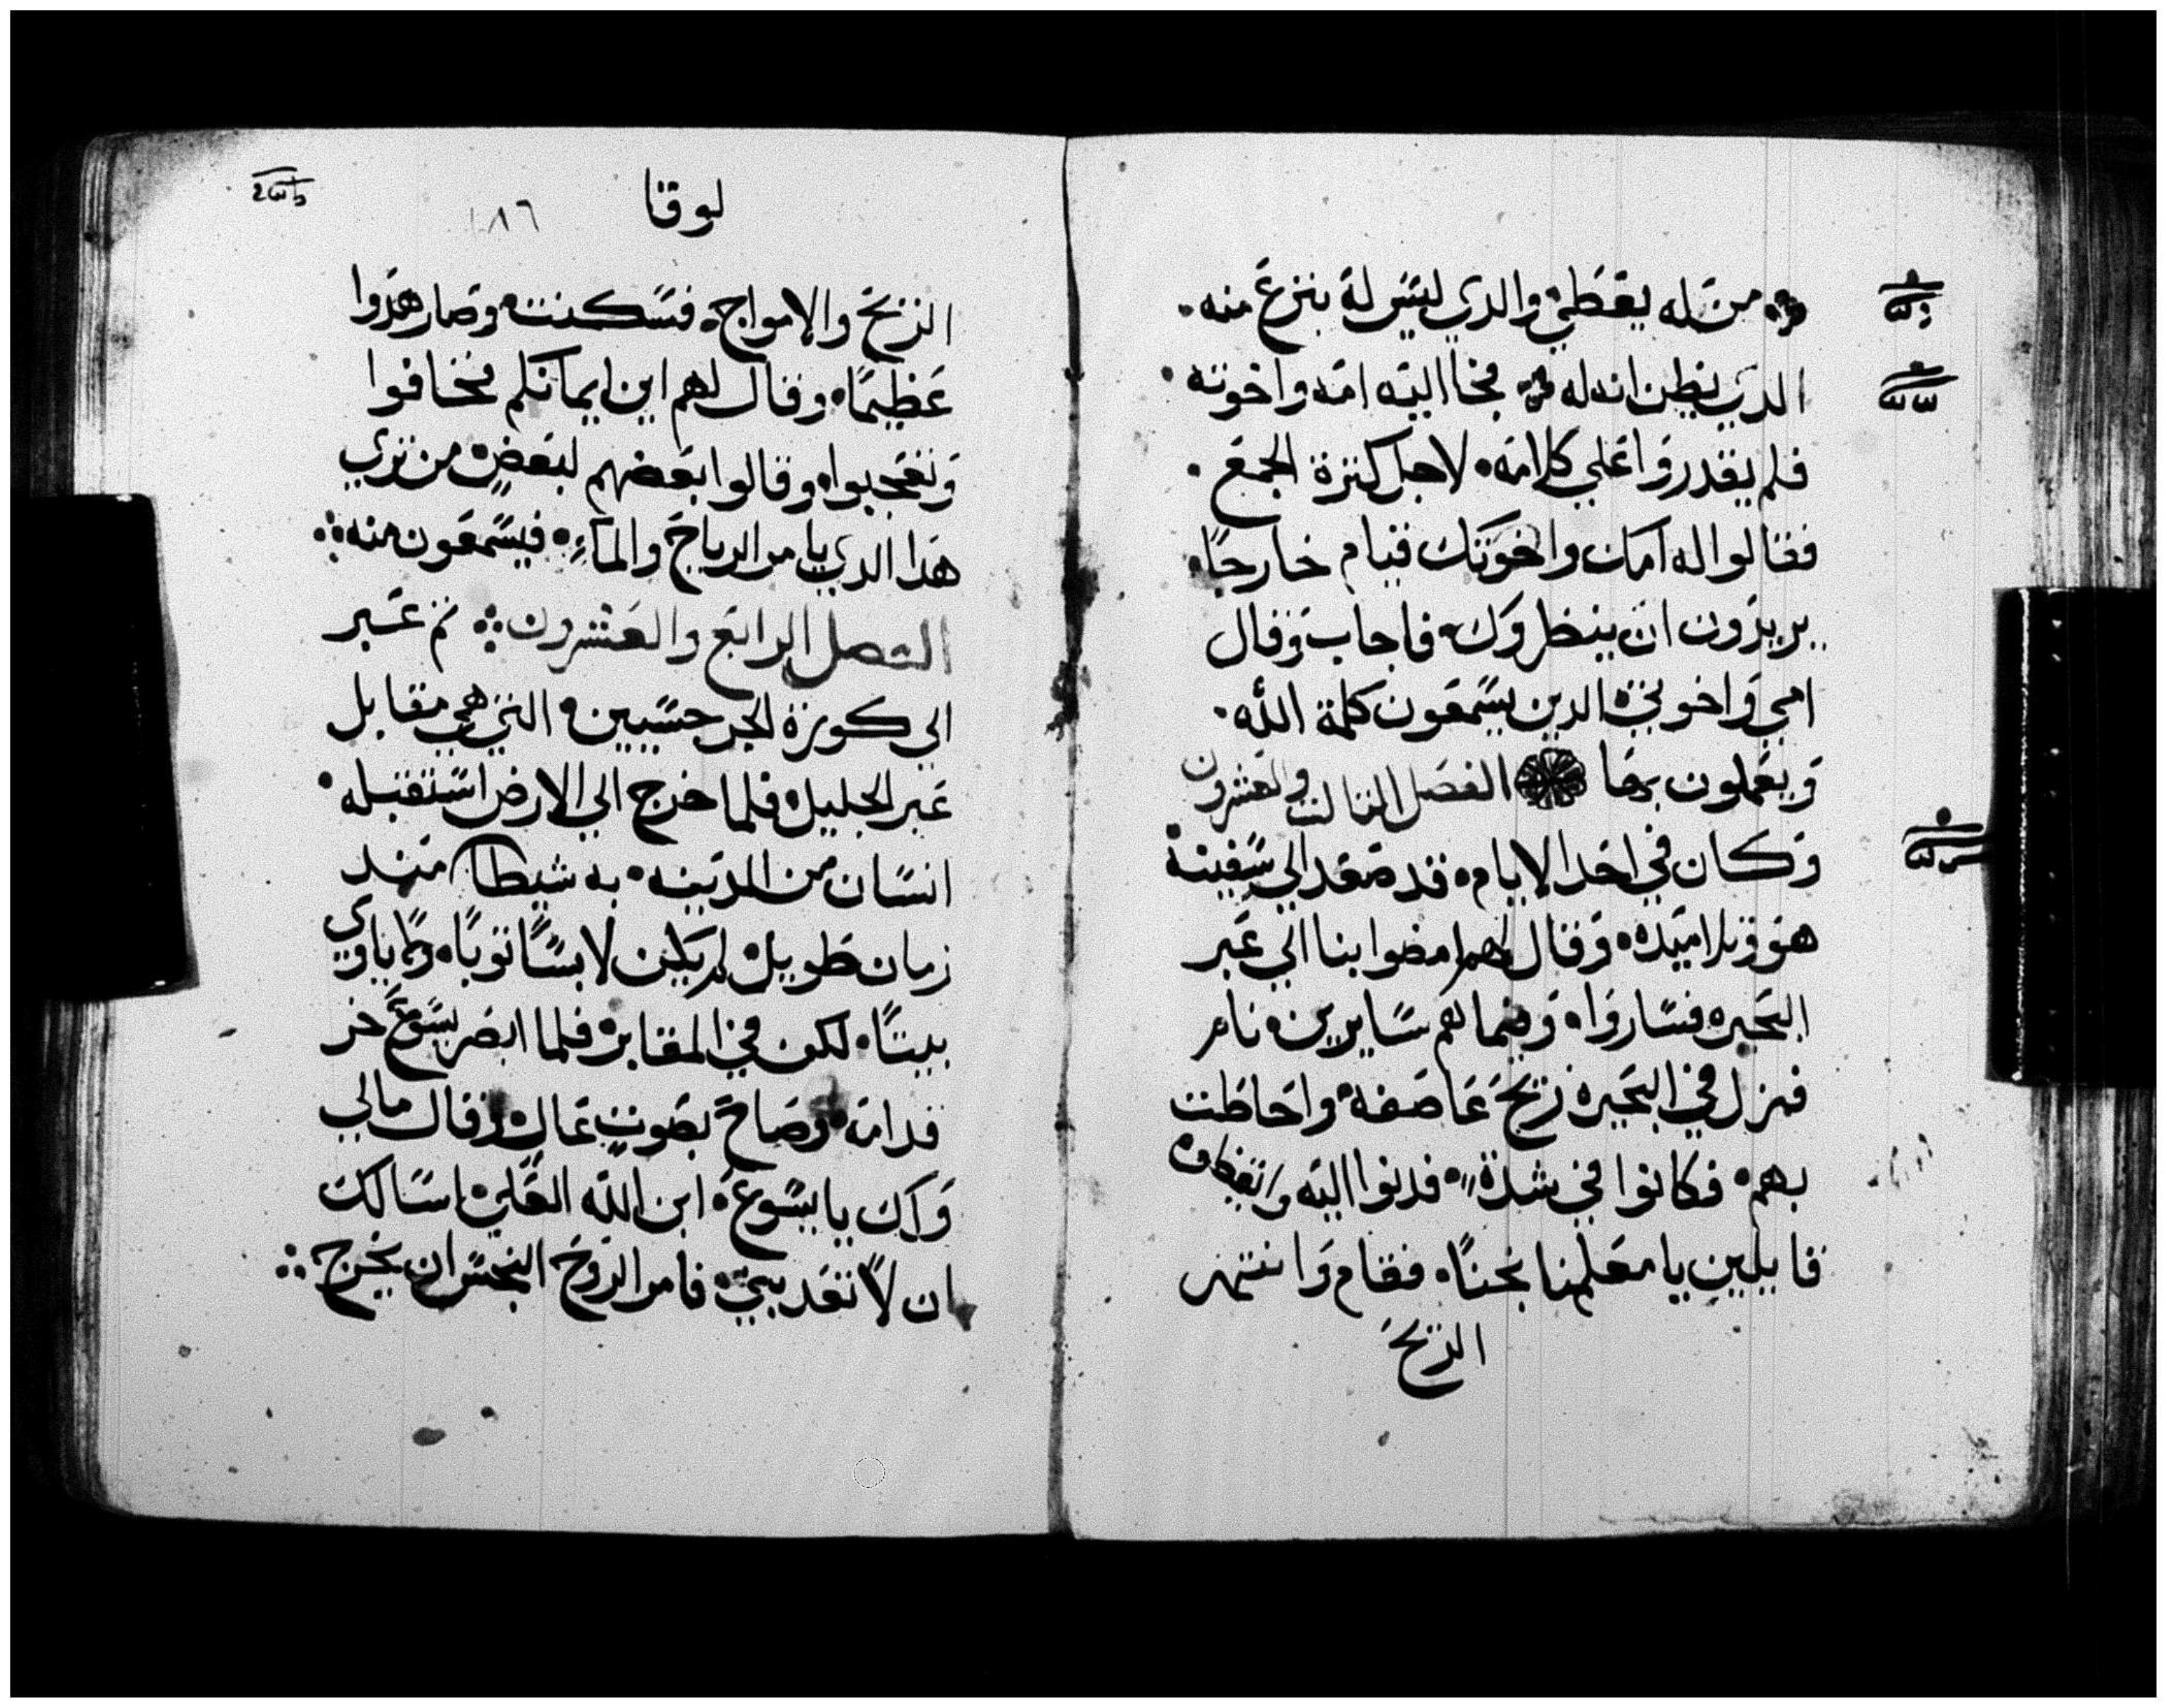 من له يعطي والدي ليس له ينزع منه.
الدي يظن انه له فجا اليه امه واخوته.
فلم يقدروا علي كلامه لاجل كترة الجمع.
فقالوا له امك واخوتك قيام خارجًا.
يريدون ان ينظروك فاجاب وقال
امي واخوتي الدين يسمعون كلمة الله.
ويعملون بها الفصل التالت والعشرون
وكان في احد الايام قد صعد الي سفينة
هو وتلاميده وقال لهم امضوا بنا الي عبر
البحيره فساروا وفيما هم سايرين نام
فنزل في البحيره ريح عاصفه واحاطت
بهم فكانوا في شدة فدنوا اليه وايقظوه
قايلين يا معلمنا نجنا فقام وانتهر
الريح
لوقا
١٨٦
الريح والامواج فسكنت وصار هدوا
عظيمًا وقال لهم اين ايمانكم فخافوا
وتعجبوا وقالوا بعضهم لبعض من تري
هدا الدي يامر الرياح والماء فيسمعون منه
الفصل الرابع والعشرون تم عبر
الي كورة الجرجسيين التي هي مقابل
عبر الجليل فلما خرج الي الارض استقبله
انسان من المدينه به شيطان مند
زمان طويل لم يكن لابسًا توبًا ولا ياوي
بيتًا لكن في المقابر فلما ابصر يسوع خر
قدامه وصاح بصوت عال وقال مالي
ولك يا يسوع ابن الله العلي اسالك
ان لا تعدبني فامر الروح النجس ان يخرج